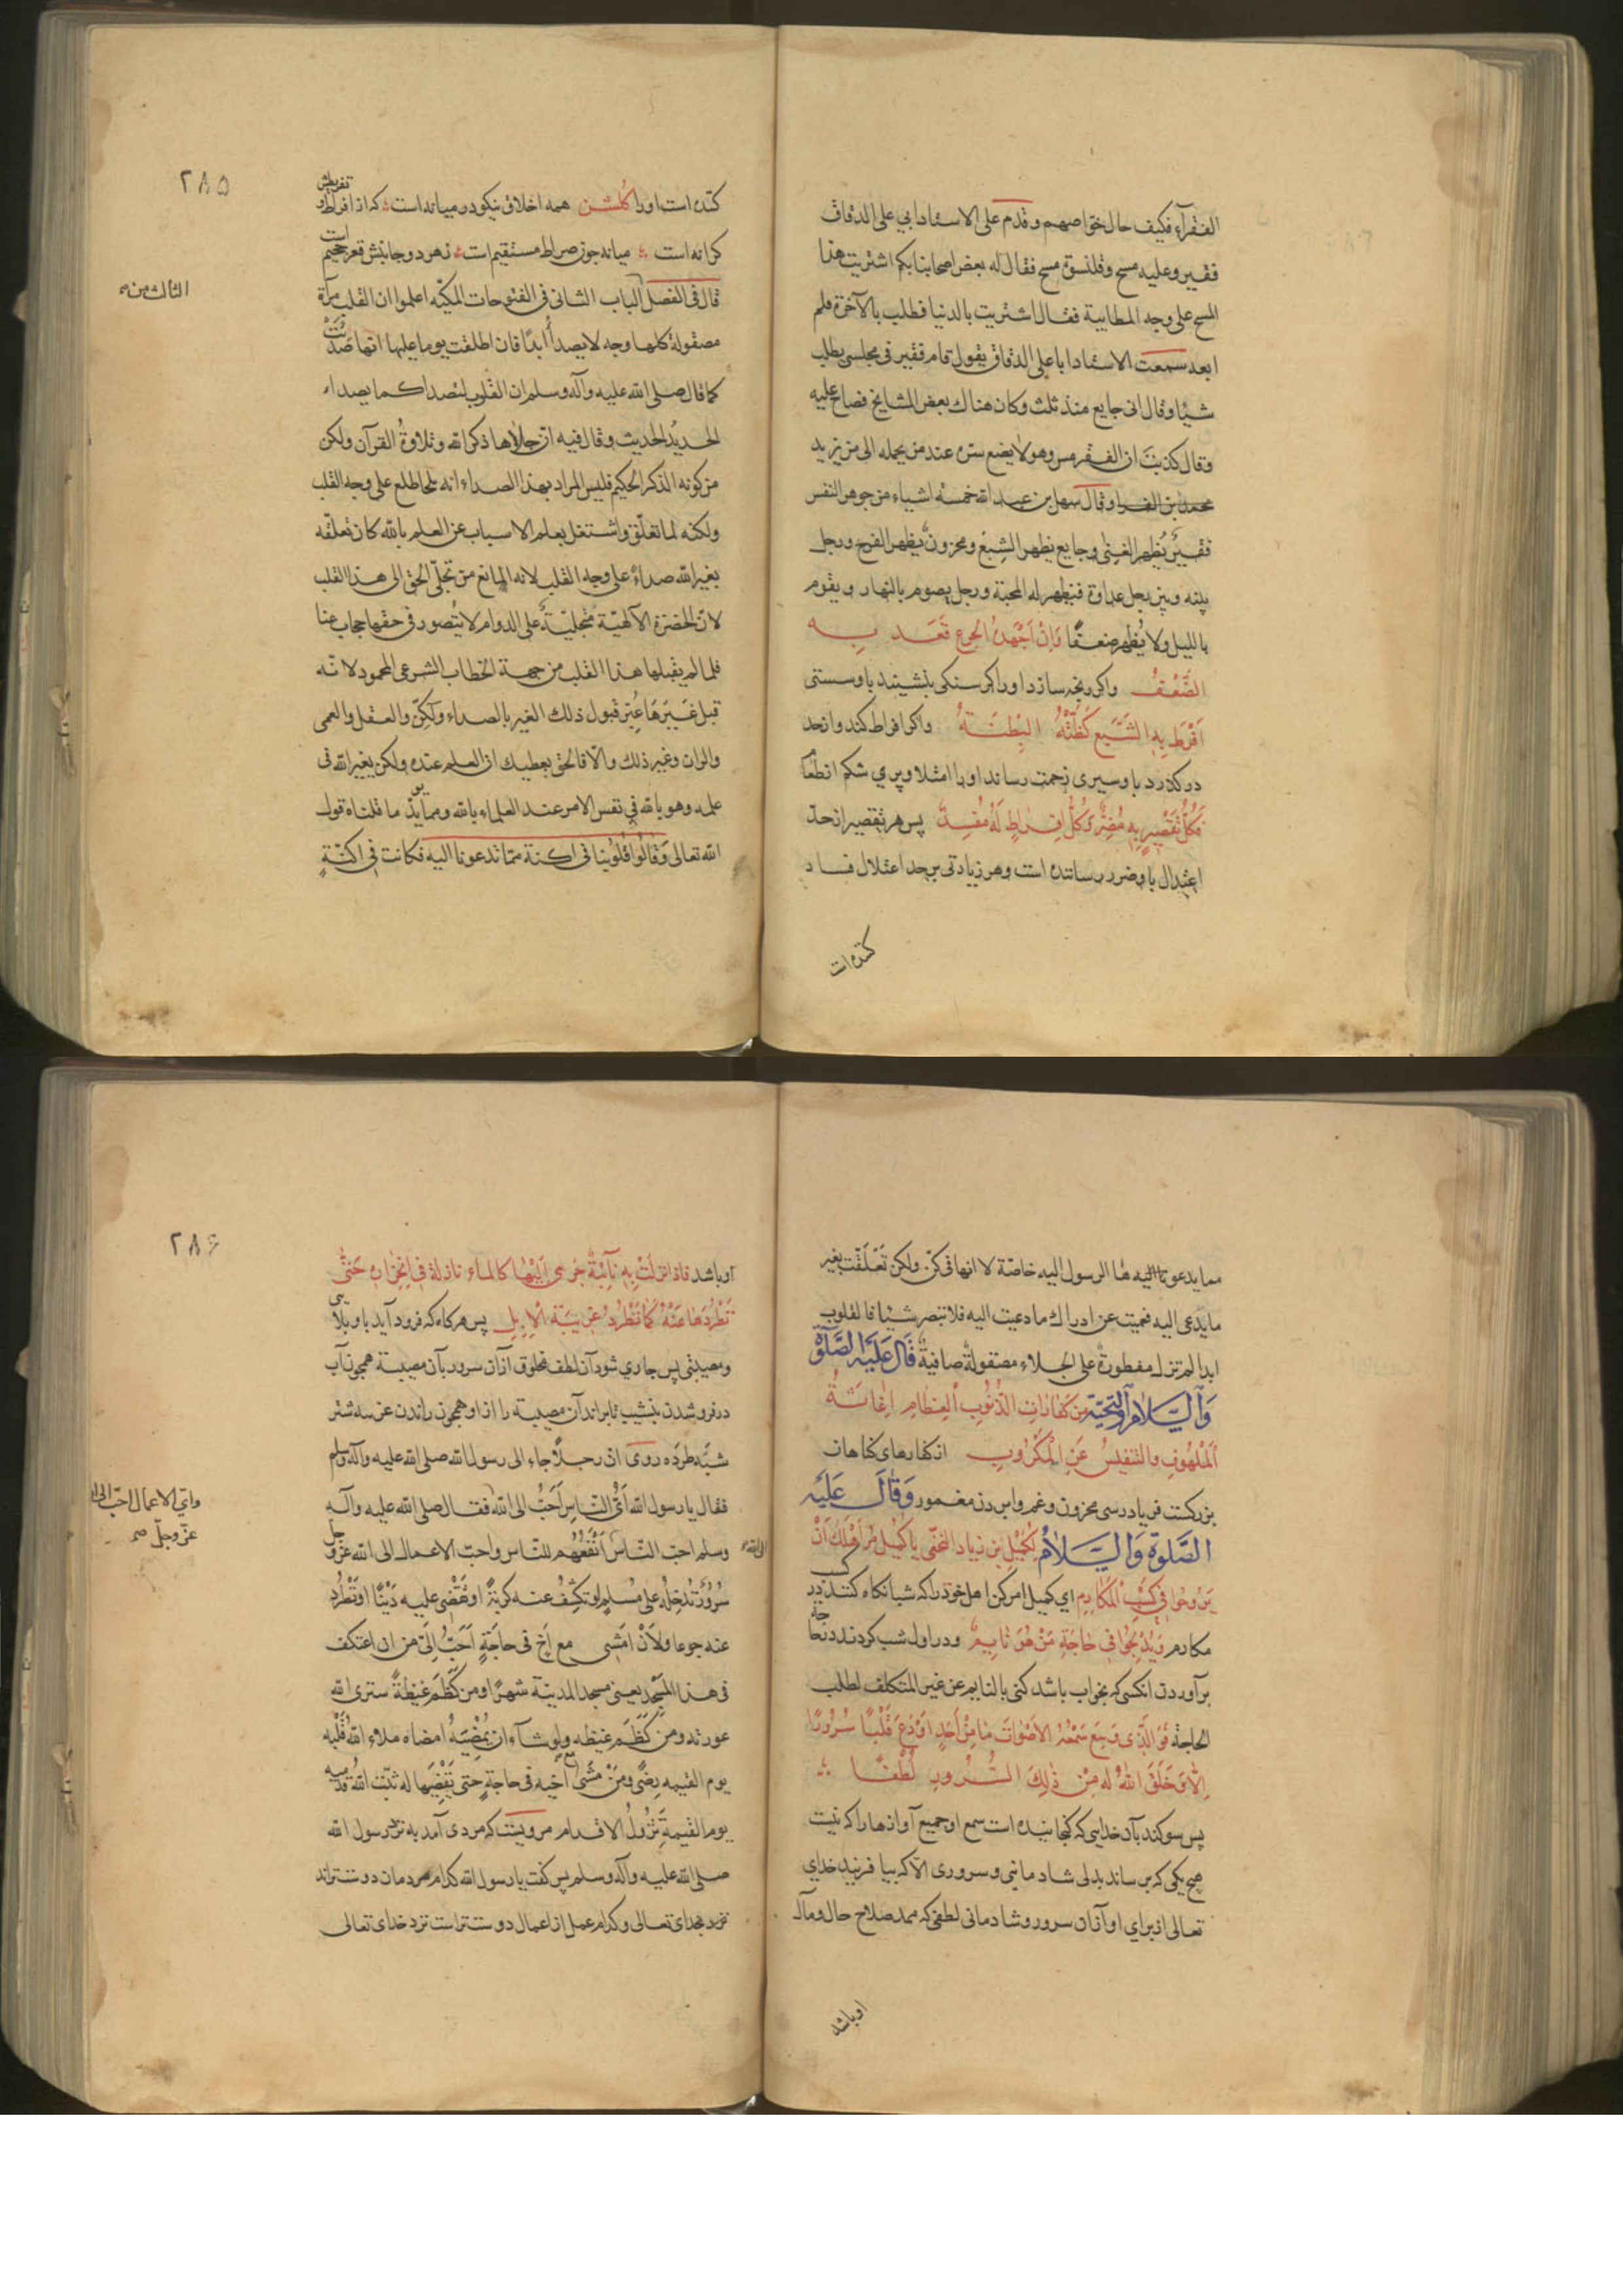 الفقرآء فكيف حال خواصهم وقدم على الاستاد ابي على الدقاق
فقير وعليه مسح وقلنسوة مسح فقال له بعض اصحابنا بكم اشتريت هذا
المسح على وجه المطايبة فقال اشتريت بالدنيا فطلب بالآخرة فلم
ابعه سمعت الاستاد ابا على الدقاق يقول قام فقير فى مجلس يطلب
شيئا وقال انى جايع منذ ثلث وكان هناك بعض المشايخ فصاح عليه
وقال كذبت ان الفقر سر وهو لا يضع سره عند من يحمله الى من يريد
محمد بن الفرا وقال سهل بن عبد الله خمسة اشياء من جوهر النفس
فقير يُظهر الغِنى وجايع يظهر الشِبَع ومحزون يظهر الفرح ورجل
بينه وبين رجل عداوة فيظهر له المحبة ورجل يصوم بالنهار ويقوم
بالليل ولا يُظهر ضعفًا وَاِنْ اَجْهَدَهُ الجُوع قَعَدَ بِــهِ
الضَّعْفُ واكر رنجه سازد اورا كرسنكى بنشيند باو سستى
اَفْرَط بِهِ الشَّبَع كَظَّتْهُ البِطْنَــةُ واكر افراط كند وازحد
در كذرد باو سيرى زحمت رساند اورا امتلا وپرى شكم از طعام
فَكُلُّ تَقْصِيرٍ بِهِ مُضِرٌّ وَكُلُّ اِفْرَاطٍ لَهُ مُفْسِدٌ پس هر تقصير از حدّ
اعتدال باو ضرر رساننده است وهر زيادتى بر حد اعتدال فساد
كننده است
٢٨٥
كننده است اورا كلشن همه اخلاق نيكو در ميانه است ؛ كه از افراط و تفريطش
كرانه است ؛ ميانه چون صراط مستقيم است ؛ زهر دو جانبش قعر جحيم است
قال فى الفصل الباب الثانى فى الفتوحات المكيّه اعلموا ان القلب مرآة
الثالث منه
مصقولة كلها وجه لا يصدأ أبدًا فان اطلقت يوما عليها انها صَدَئَتْ
كما قال صلى الله عليه وآله وسلم ان القلوب لتصدا كما يصداء
الحديدُ الحديث وقال فيه انّ جلاءها ذكر الله وتلاوةُ القرآن ولكن
من كونه الذكر الحكيم فليس المراد بهذا الصداء انه طخا طلع على وجه القلب
ولكنه لما تعلّق واشتغل بعلم الاسباب عن العلم بالله كان تعلّقه
بغير الله صداءً على وجه القلب لانه المانع من تجلّى الحق الى هذا القلب
لانّ الحضرة الآلهيّة متجليّةٌ على الدوام لا يُتصور فى حقّها حجاب عنّا
فلما لم يقبلها هذا القلب من جهة الخطاب الشرعى المحمود لانّه
قبل غَيرَهَا عُبّر قبول ذلك الغير بالصداء ولكنّ والقفل والعمى
والران وغير ذلك والّا فالحق يعطيك ان العلم عنده ولكن بغير الله فى
علمه وهو بالله فى نفس الامر عند العلماء بالله ومما يؤيّد ما قلناه قول
الله تعالى وَقَالُوا قُلُوبُنا فى اكنة ممّا تدعونا اليه فكانت فى اكنّةٍ
مما يدعوها الرسول اليه خاصّة لا انها فى كنّ ولكن تَعَلّقَت بغير
ما يدعى اليه فعميت عن ادراك ما دعيت اليه فلا تبصر شيئا فالقلوب
ابدا لم تزل مفطورةً على الجلاء مصقولةً صافيةً قَالَ عَلَيْهِ الصَّلٰوةُ
وَالسَّلَامُ وَالتَّحِيّة مِنْ كَفَّارَاتِ الذُّنُوبِ الْعِظَامِ اِغَاثَــةُ
اَلْمَلْهُوفِ والتنفِيسُ عَنِ الْمَكْرُوبِ از كفارهاى كناهان
بزركست فرياد رسى محزون وغم وابردن مغمور وَقَالَ عَلَيْهِ
الصَّلٰوةُ وَالسَّــلَامُ لِكُمَيْل بن زياد النخعى يا كُمَيل مُرْ اَهْلَكَ اَنْ
يَرُوحُوا فِى كَسْبِ الْمَكَارِمِ اى كميل امر كن اهل خود را كه شبانكاه كنند در كسب
مكارم وَيُدْلِجُوا فِى حَاجَةِ مَنْ هُوَ نَائِمٌ ودر اول شب كردند در حاجة
برآوردن انكسى كه بخواب باشد كنى بالنايم عن غير المتكلف لطلب
الحاجة فَوَالَّذِى وَسِعَ سَمْعُهُ الاَصْوَاتَ مَا مِنْ اَحَدٍ اَوْدَعَ قَلْبًا سُرُورًا
اِلَّا وَخَلَقَ اللهُ لَهُ مِنْ ذٰلِكَ السُّــرُورِ لُطْفًــا ؛
پس سوكند بآن خدايى كه كنجانيده است سمع او جميع آوازها را كه نيست
هيچ يكى كه برساند بدلى شادمانى وسرورى الّا كه بيافريند خداى
تعالى از براى او آزان سرور وشادمانى لطفى كه ممد صلاح حال ومآل
او باشد
٢٨۶
او باشد فَاِذَا نَزَلَتْ بِهِ نَائِبَةٌ جَرٰى اِلَيْهَا كالماء نازلة فى اِنْحِدَارِهِ حَتّٰى
تَطْرُدَهَا عَنْهُ كَمَا تُطْرَدُ غَرِيبَةُ الْاِبِلِ پس هركاه كه فرود آيد باو بلاّيى
ومصيبتى پس جارى شود آن لطف مخلوق ازآن سرور بآن مصيبة همچون آب
در فرو شدن بنشيب تا براند آن مصيبة را ازاو همچون راندن عن سه شتر
شبّه طرده روى ان رجلاً جاء الى رسول الله صلى الله عليه وآله وسلم
فقال يا رسول الله اَىُّ النّاس اَحَبُّ الى الله فقال صلى الله عليه وآلــه
واىّ الاعمال احبّ الى الله
عزّ وجلّ صح
وسلم احب النّاس اَنْفَعُهُم للنّاس واحبّ الاعمال الى الله عزّ وجلّ
الى الله
سُرُورٌ تُدخِلُهُ على مُسْلِمٍ او تكشِفُ عنه كُربَةً او تَقْضِى عليه دَيْنًا او تَطْرُد
عنه جوعا وَلَاَنْ اَمْشِى مع اَخٍ فى حَاجَةٍ اَحَبُّ اِلَىّ من ان اعتكف
فى هذا المَسْجِد يعنى مسجد المدينة شهرًا ومن كَظَمَ غَيظَهُ ستر الله
عورته ومن كَظَمَ غيظه ولو شآء ان يُمْضِيَهُ امضاه ملاء اللهُ قَلْبَه
يوم القيمه رِضًى ومَنْ مَشَى مع اخيه فى حاجةٍ حتى يَقْضِيَها له ثبّت اللهُ قدميه
يوم القيمةِ تَزُولُ الاقدام مرويست كه مردى آمد به نزد رسول الله
صلى الله عليه وآله وسلم پس كفت يا رسول الله كدام مردمان دوستراند
نزد خداى تعالى وكدام عمل از اعمال دوستتر است نزد خداى تعالى